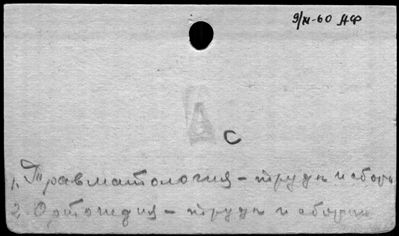 9/XI-60 ДФ
С
1. Травматология - труды и сборн
2. Ортопедия - труды и сборник